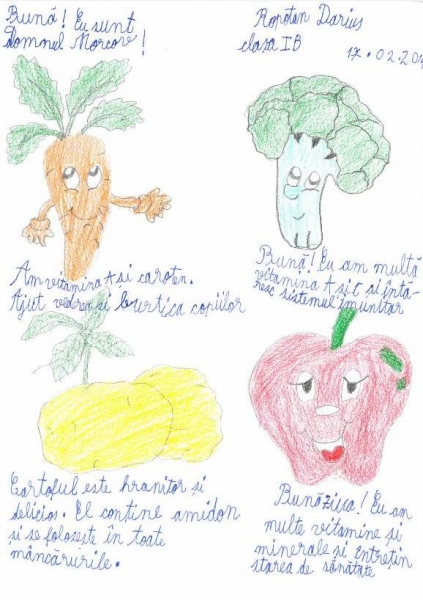 Bună! Eu sunt
Domnul Morcov!
Ropotan Darius
clasa I B
17.02.201
Am vitamina A și caroten.
Ajut vederea și burtica copiilor
Bună! Eu am multă
vitamina A și C și întă-
resc sistemul imunitar
Cartoful este hrănitor și
delicios. El conține amidon
și se folosește în toate
mâncărurile.
Bunăziua! Eu am
multe vitamine și
minerale și întrețin
starea de sănătate